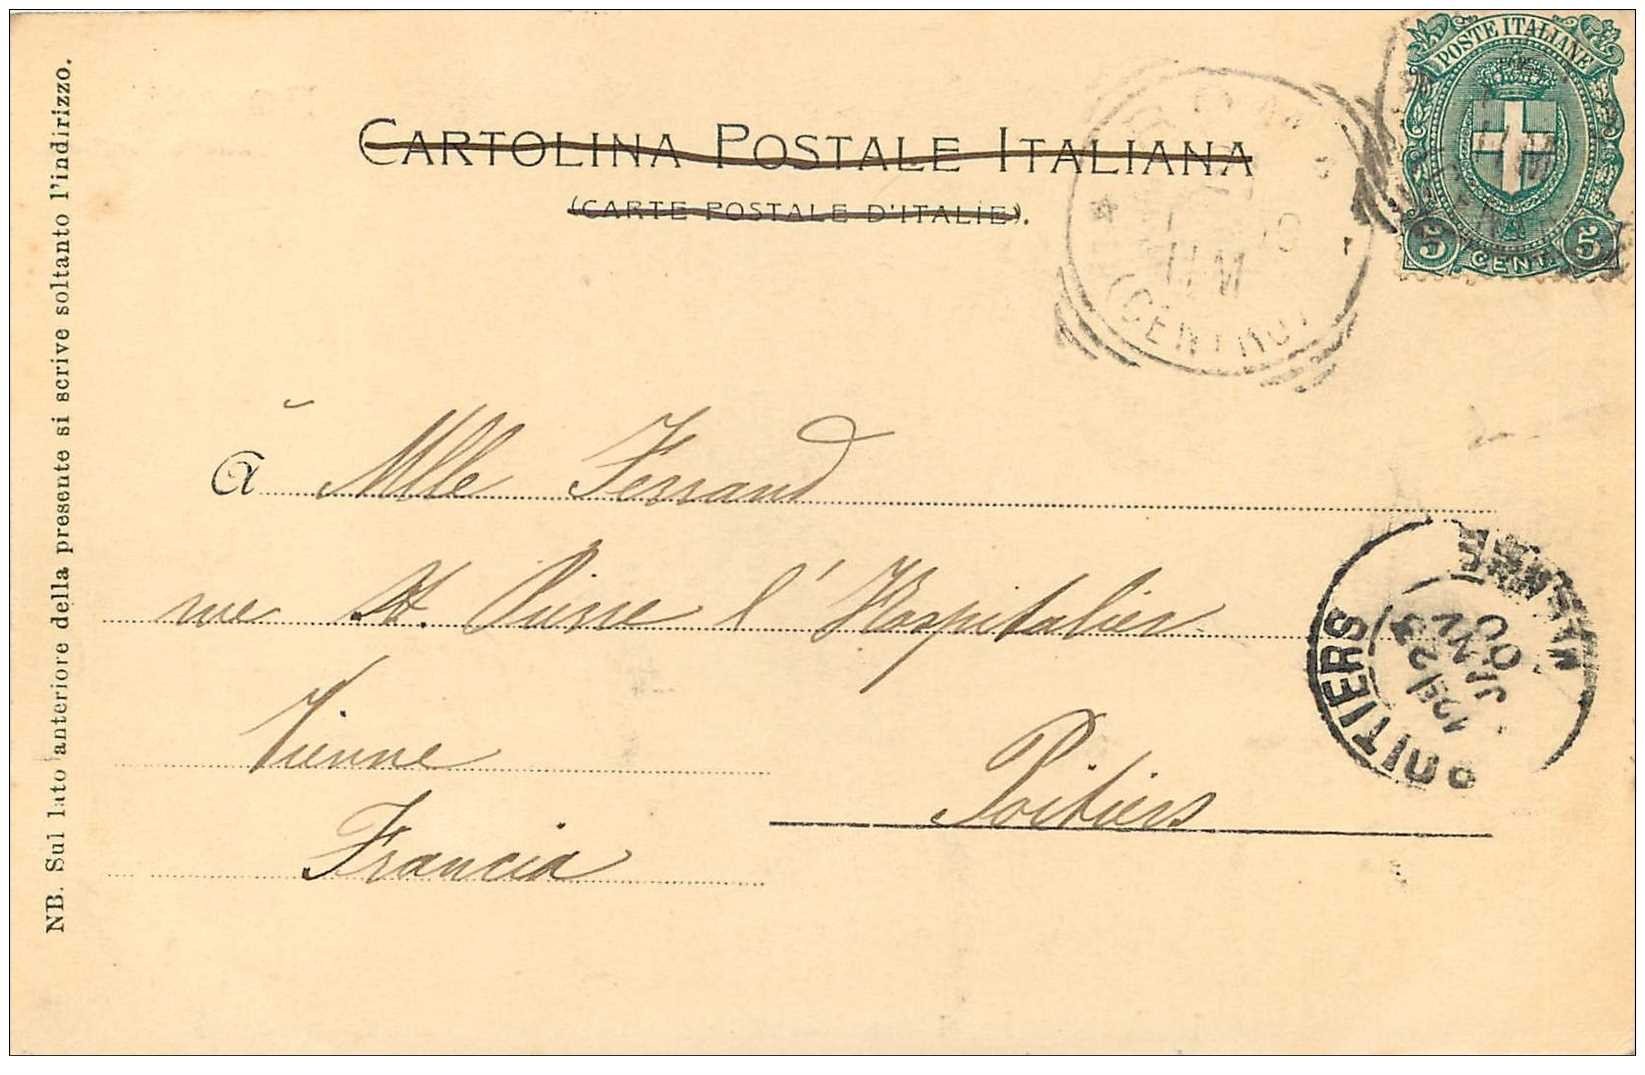 POSTE ITALIANE
CARTOLINA POSTALE ITALIANA
(CARTE POSTALE D'ITALIE).
5 CENT. 5
ROMA
11 M
(CENTRO)
NB. Sul lato anteriore della presente si scrive soltanto l'indirizzo.
à Mlle Ferrand
rue St. Pierre l'Hospitalier
Vienne
Poitiers
Francia
POITIERS
VIENNE
JANV